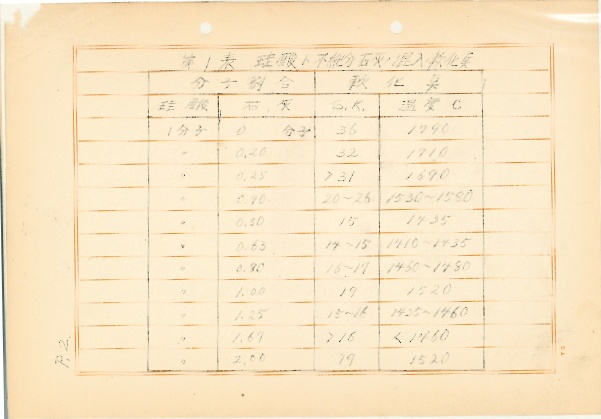 第1表 珪酸ト不純分石灰ノ混入ト軟化点
分子割合 軟化点
珪酸 石灰 S.K. 温度C
1分子 0 分子 36 1790
〃 0.20 32 1710
〃 0.25 >31 1690
〃 0.40 20~26 1530~1580
〃 0.50 15 1435
〃 0.63 14~15 1410~1435
〃 0.80 16~17 1460~1480
〃 1.00 19 1520
〃 1.25 15~16 1435~1460
〃 1.67 >16 <1460
〃 2.00 19 1520
P.2.